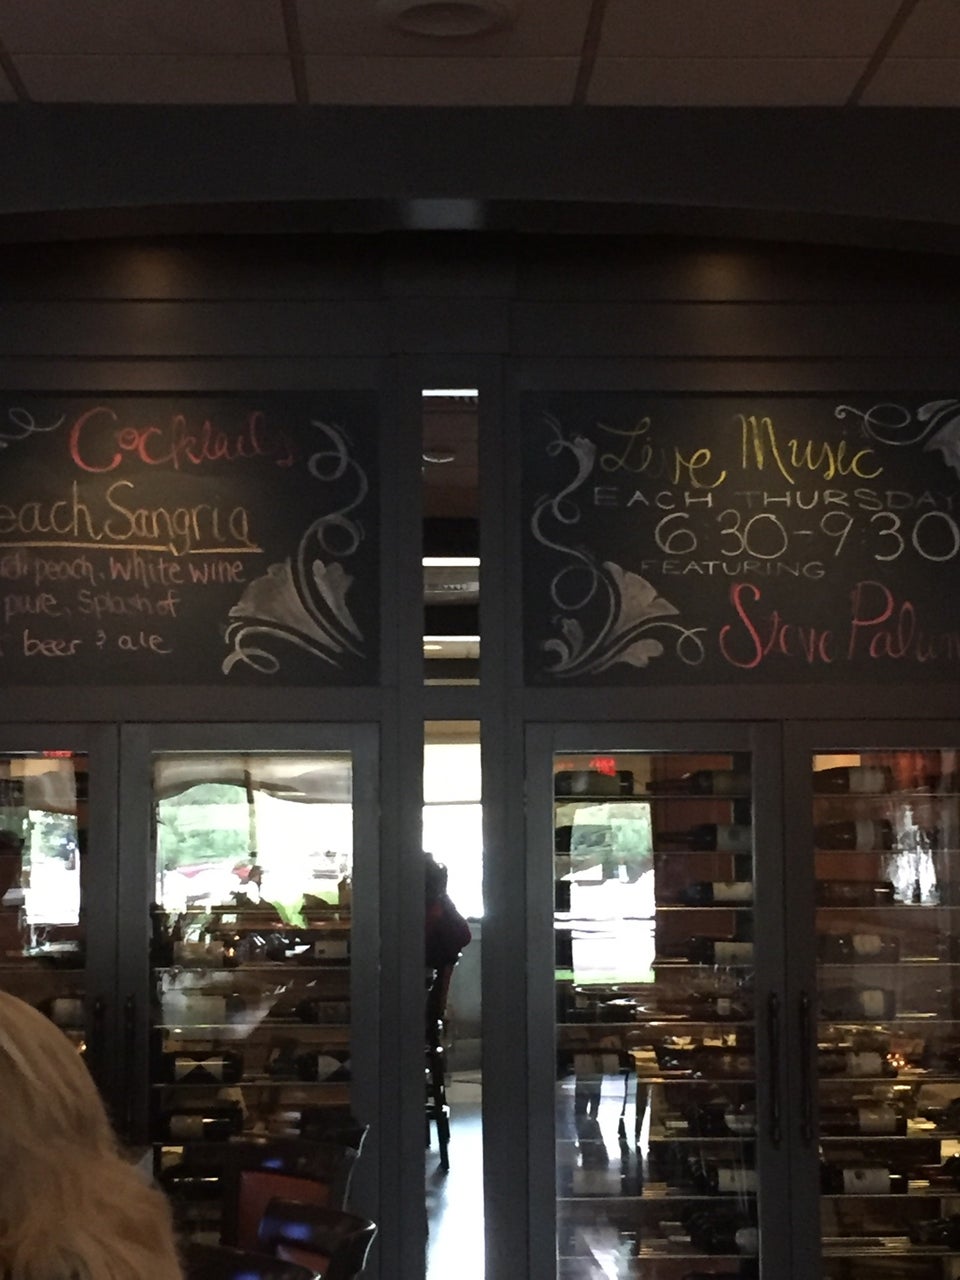 Cocktails
each Sangria
peach, white wine
pure, Splash of
beer & ale
Live Music
EACH THURSDAY
6:30-9:30
FEATURING
Steve Palum